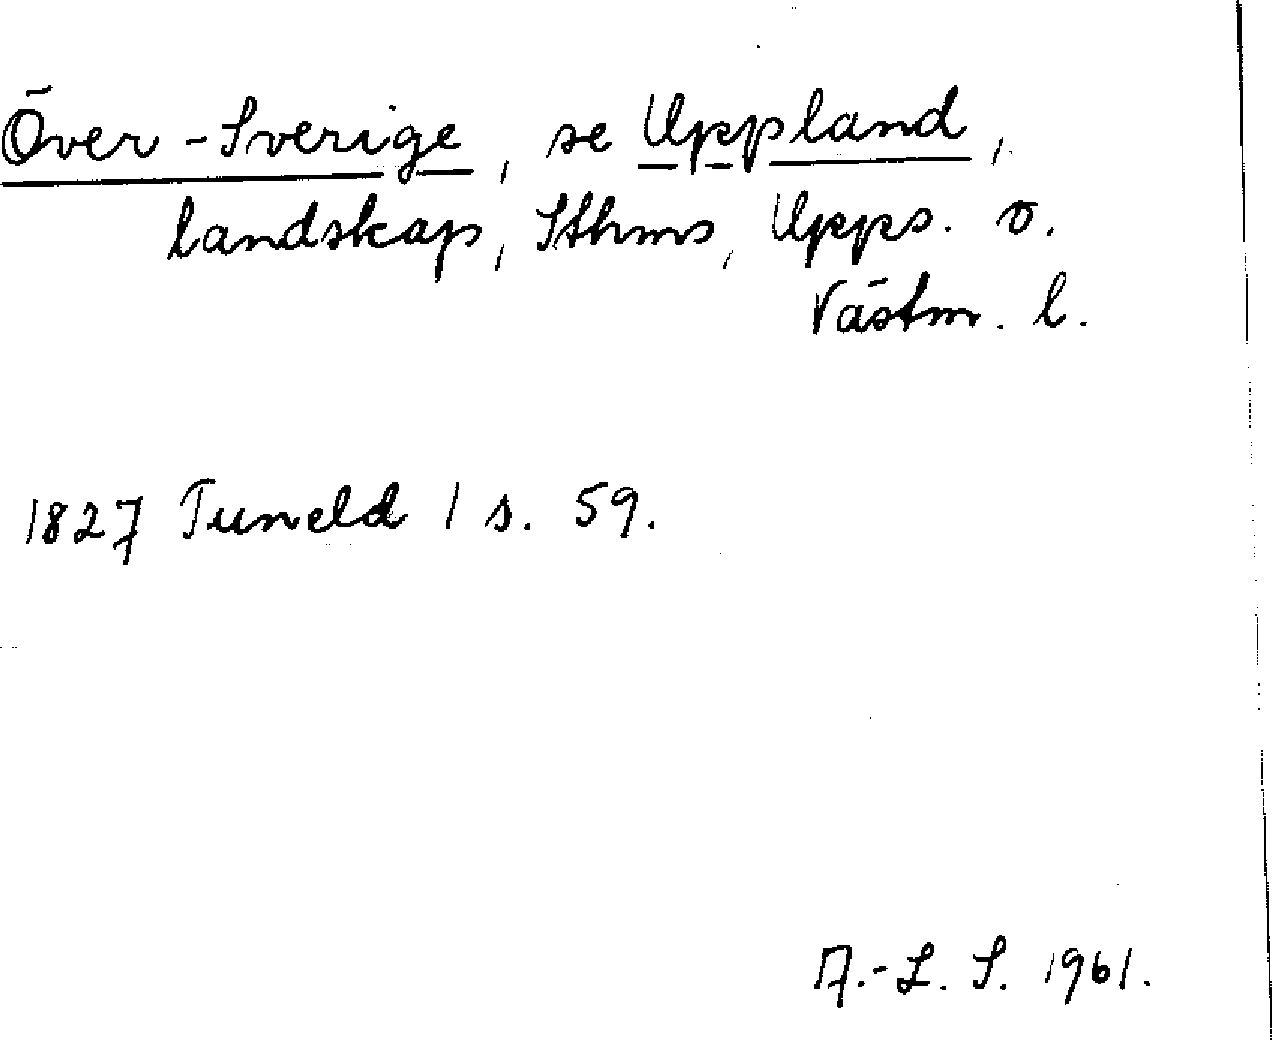 Över-Sverige, se Uppland,
landskap, Sthms, Upps. o.
Västm. l.
1827 Tuneld 1 s. 59.
A.-L. S. 1961.